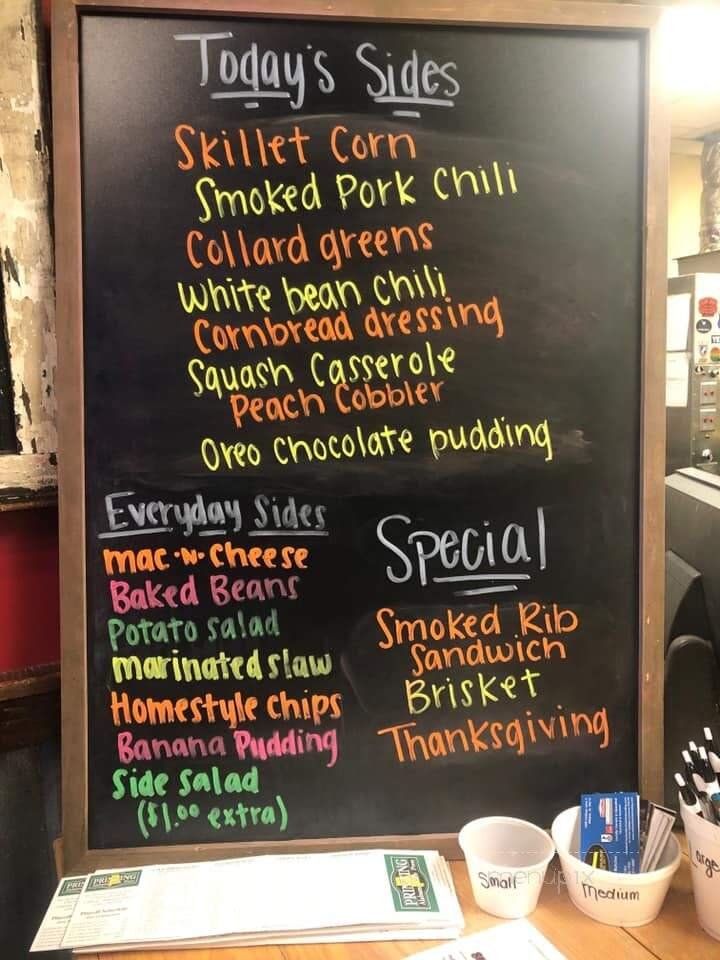 Today's Sides
Skillet Corn
Smoked Pork Chili
Collard greens
White bean chili
Cornbread dressing
Squash Casserole
Peach Cobbler
Oreo Chocolate pudding
Everyday Sides
mac •N• Cheese
Baked Beans
Potato salad
marinated slaw
Homestyle Chips
Banana Pudding
Side Salad
($1.00 extra)
Special
Smoked Rib
Sandwich
Brisket
Thanksgiving
Small
Medium
Large
menupix
PRINTING